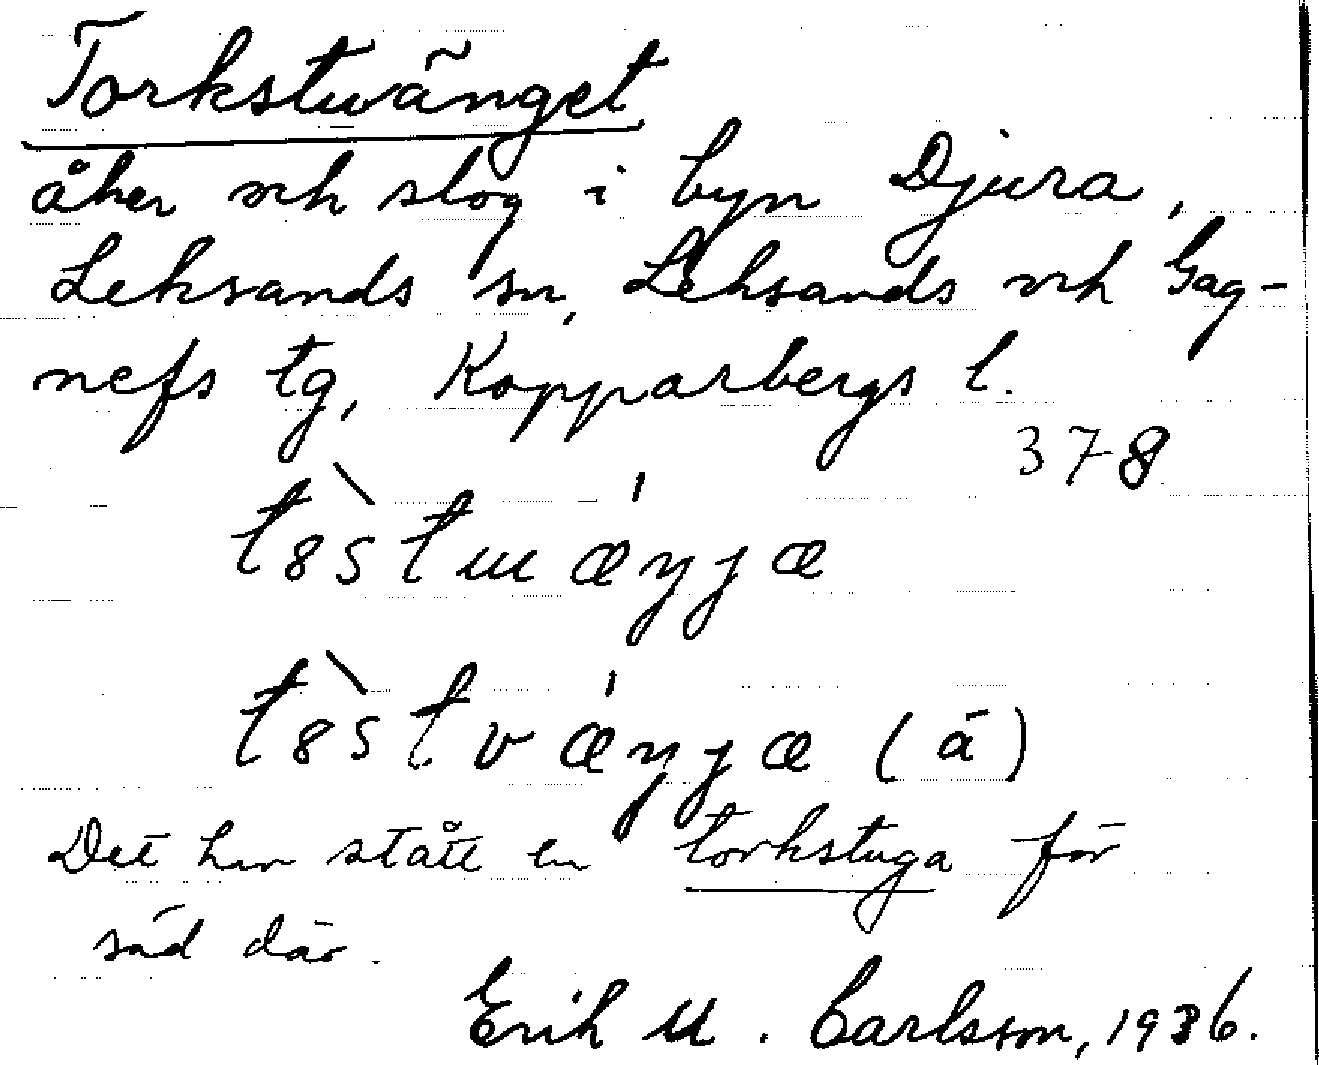 Torkstuvänget
åker och slog i byn Djura,
Leksands sn, Leksands och Gag-
nefs tg, Kopparbergs l.
378
t8̀stɯǽŋɟæ
t8̀stvǽŋɟæ (ä)
Det har stått en torkstuga för
säd där.
Erik M. Carlsson, 1936.